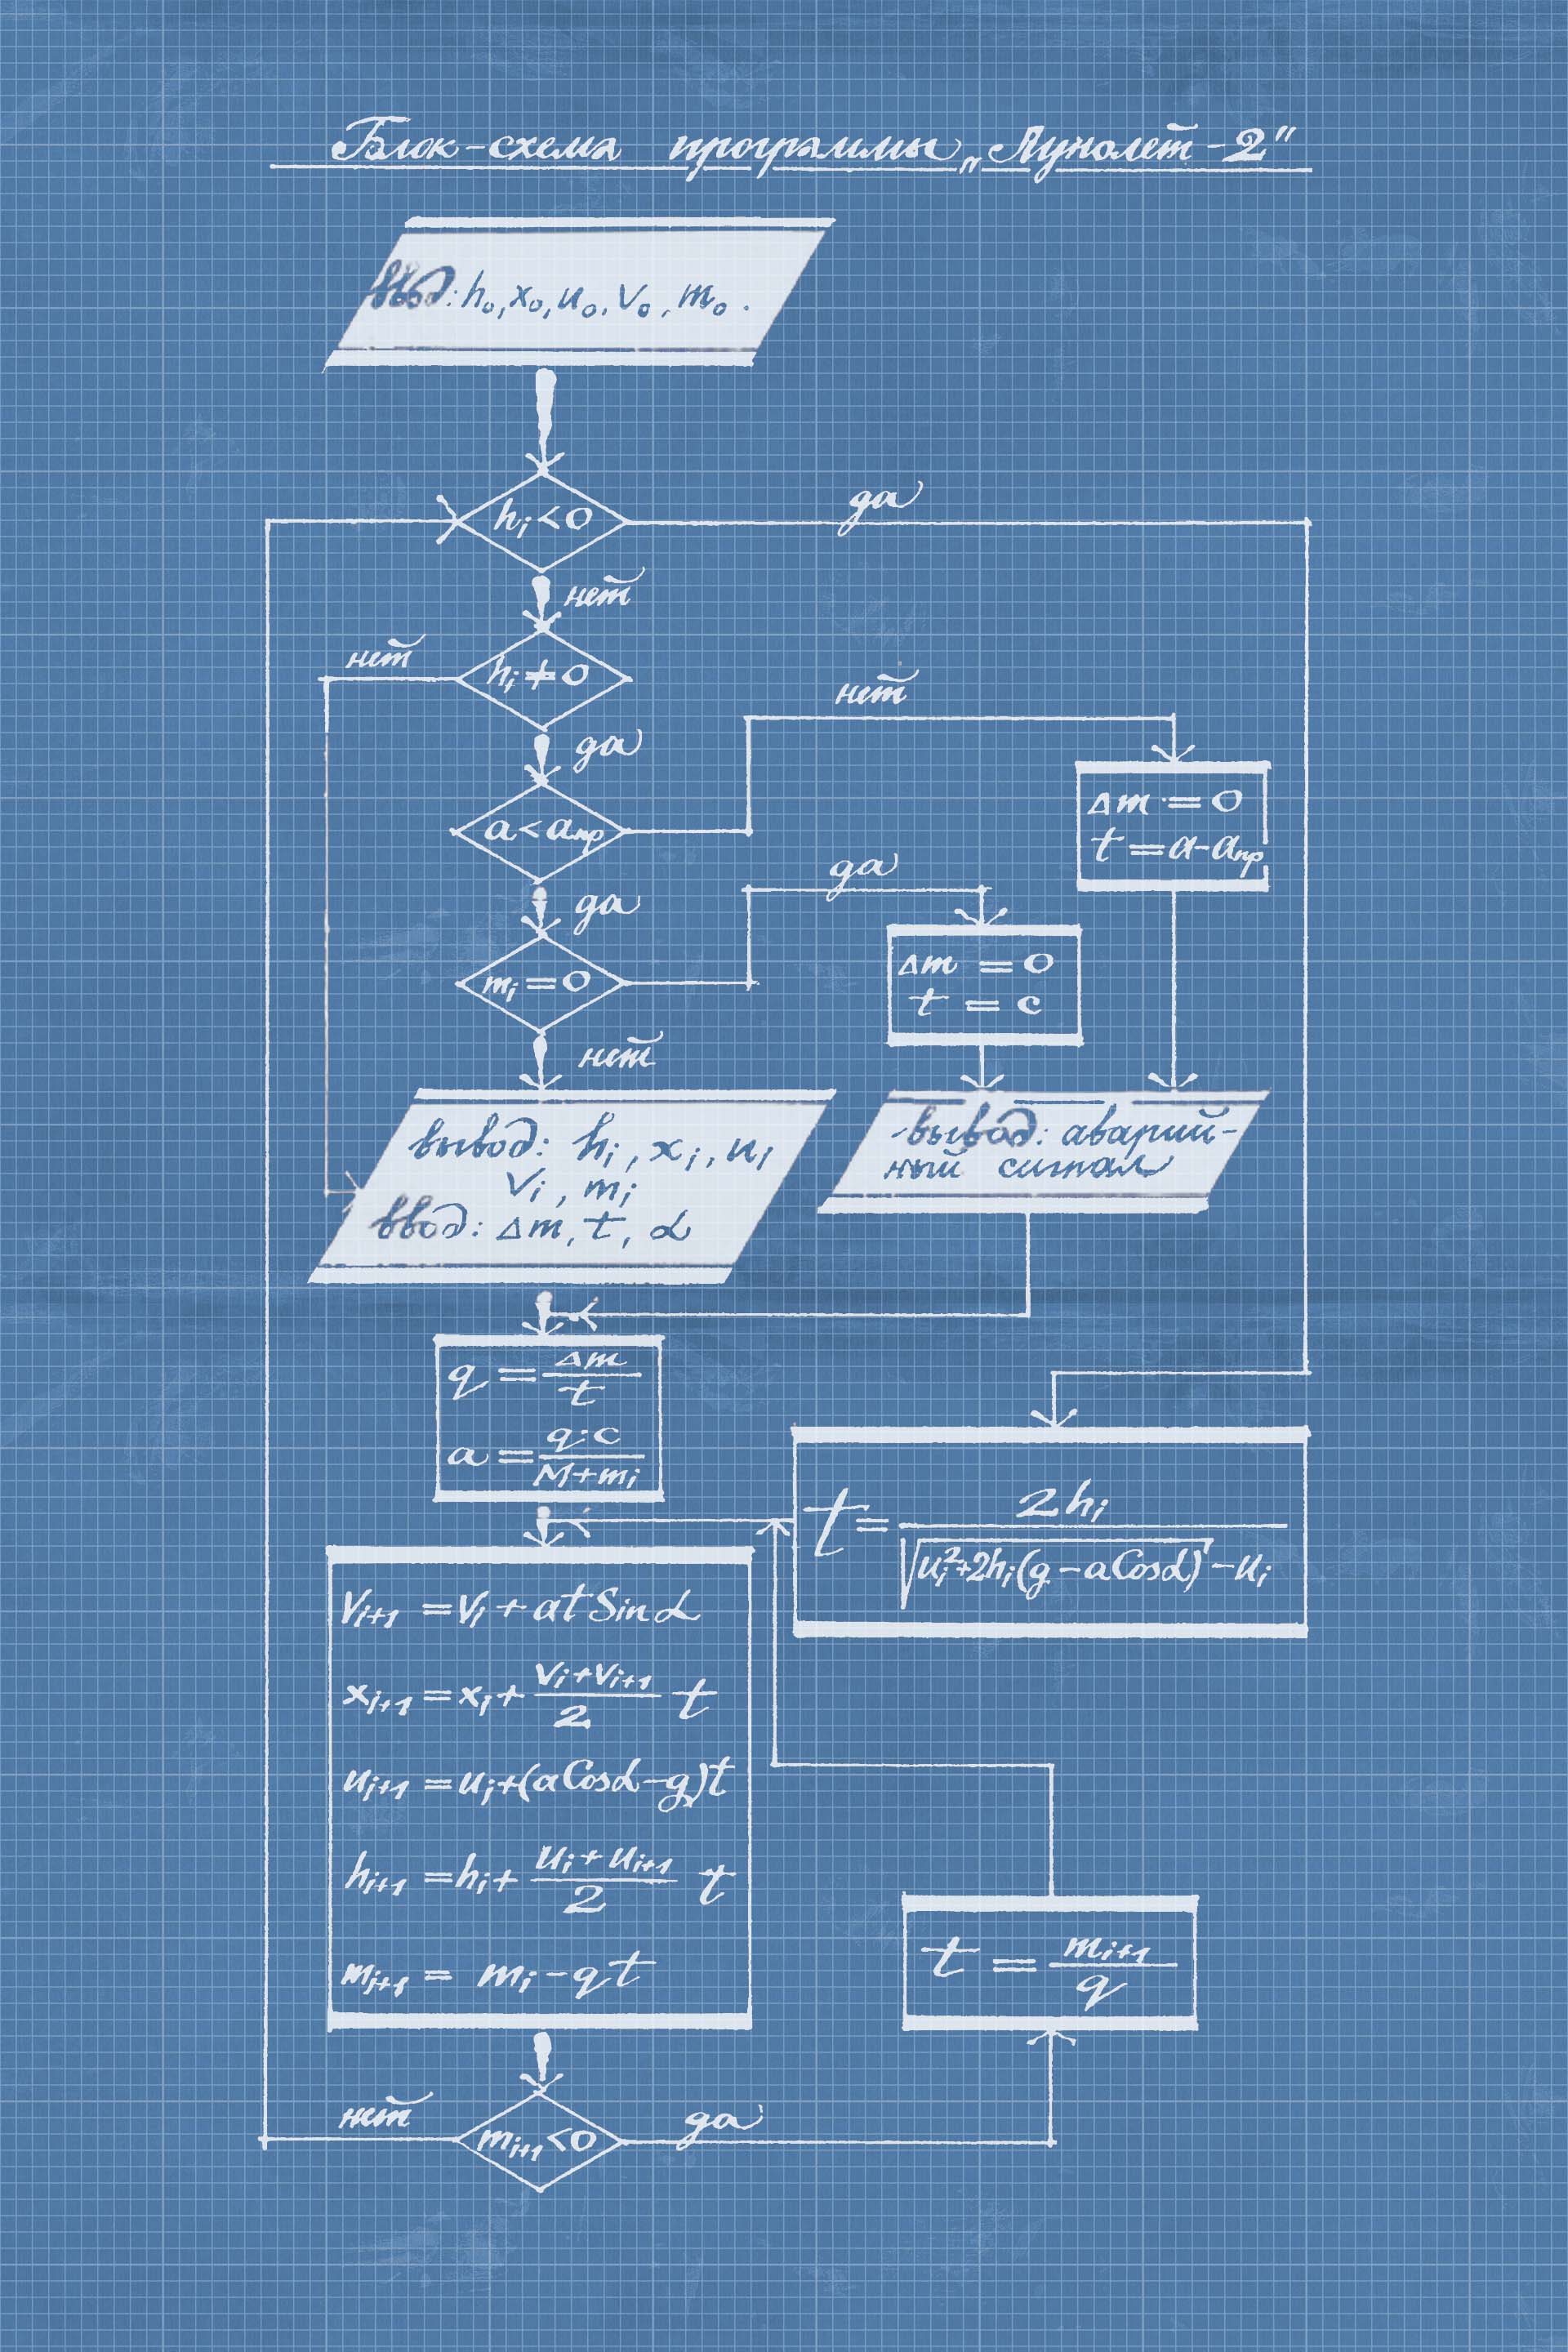 Блок-схема программы „Лунолет-2"
ввод: h₀, x₀, u₀, V₀, m₀.
hᵢ<0
да
нет
hᵢ≠0
нет
да
нет
a<aпр
Δm = 0
t = a-aпр
да
да
mᵢ=0
Δm = 0
t = c
нет
вывод: hᵢ, xᵢ, uᵢ
Vᵢ, mᵢ
ввод: Δm, t, α
вывод: аварий-
ный сигнал
q = Δm/t
a = q·c/(M+mᵢ)
t = 2hᵢ/(√(uᵢ²+2hᵢ(g-aCosα))-uᵢ)
Vᵢ₊₁ = Vᵢ + at Sinα
xᵢ₊₁ = xᵢ + (Vᵢ+Vᵢ₊₁)/2 t
uᵢ₊₁ = uᵢ+(aCosα-g)t
hᵢ₊₁ = hᵢ + (uᵢ+uᵢ₊₁)/2 t
mᵢ₊₁ = mᵢ-qt
t = mᵢ₊₁/q
нет
mᵢ₊₁<0
да